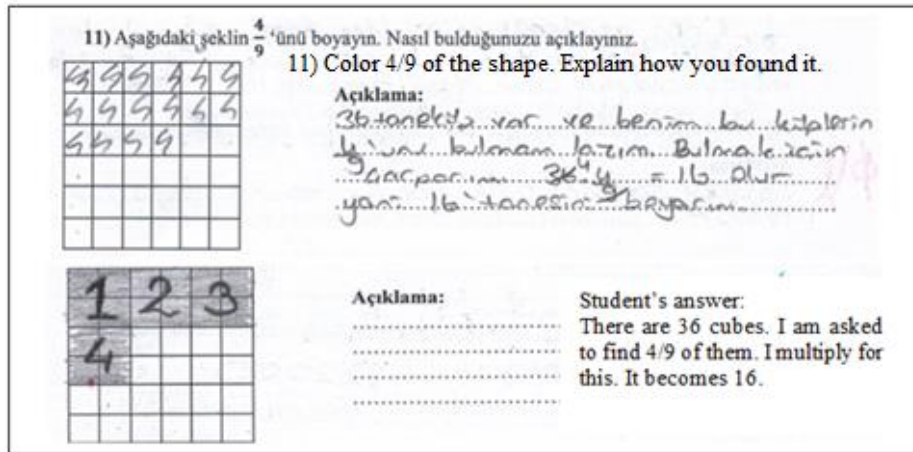 11) Aşağıdaki şeklin 4/9 'ünü boyayın. Nasıl bulduğunuzu açıklayınız.
11) Color 4/9 of the shape. Explain how you found it.
Açıklama:
36 tane küp var ve benim bu küplerin
4/9'unu bulmam lazım. Bulmak için
çarparım 36 · 4/9 = 16 olur
yani 16 tanesini boyarım
1 2 3
4
Açıklama:
Student's answer:
There are 36 cubes. I am asked
to find 4/9 of them. I multiply for
this. It becomes 16.